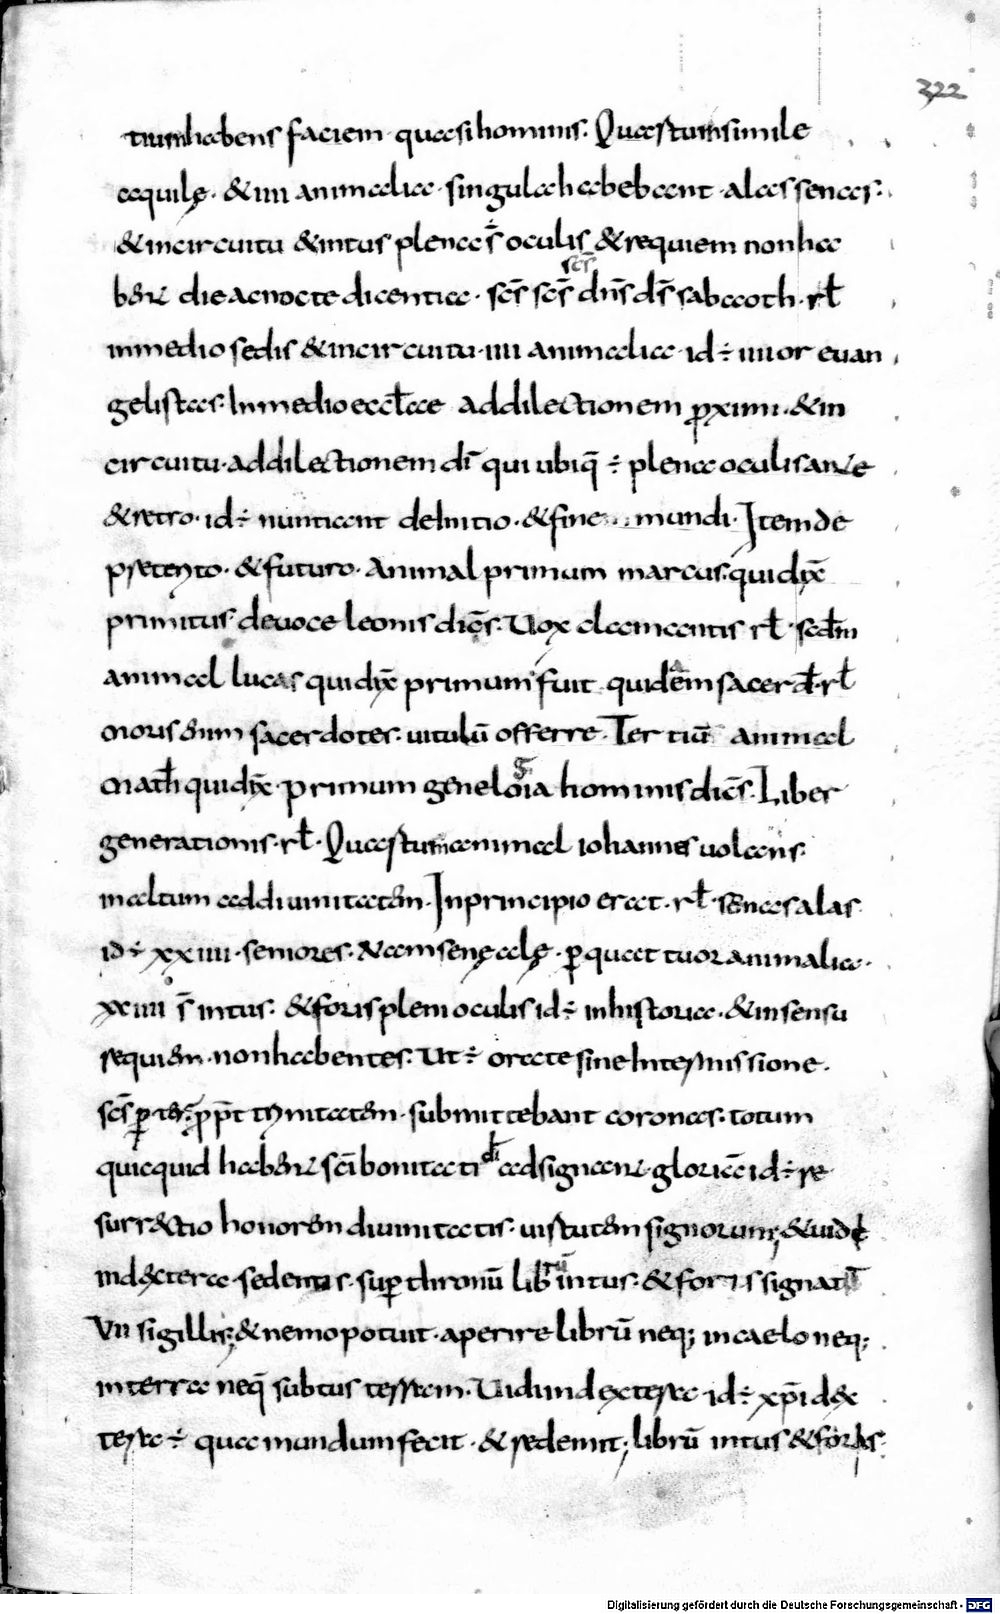 322
tium habens faciem quasi hominis. Quartum simile
aquilę. & iiii animalia. singula habebant. alas senas.
& in circuitu & intus plena s̄ oculis & requiem non ha
ber& die ac nocte dicentia. sc̄s sc̄s sc̄s dn̄s ds̄ sabaoth. rł
in medio sedis & in circuitu. iiii animalia. id ÷ iiii or evan
gelistas. In medio eccłae ad dilectionem ꝓximi. & in
circuitu. ad dilectionem dī qui ubiq̄ ÷ plena oculis ante
& retro. id ÷ nuntiant de initio. & fine mundi. Item de
preterito. & futuro. Animal primum marcus. qui dix̄
primitus de voce leonis dicēs. Vox clamantis rł. sedm̄
animal lucas qui dix̄ primum fuit quidem sacerd̄. rł
moris enim sacerdotes. vitulū offerre. Tertiū animal
math̄ qui dix̄. primum genelogia hominis dicēs. Liber
generationis. rł. Quartum animal iohannes volans.
in altum ad divinitatem. In principio erat. rł. senas alas
id ÷ xxiiii. seniores. Nam senę alę. ꝑ quattuor animalia.
xxiiii s̄ intus. & foris pleni oculis id ÷ in historia. & in sensu
requi&m. non habentes. Ut ÷ orate sine intermissione.
sc̄s ꝑ ter. ꝓpt̄ trinitatem. submittebant coronas. totum
quicquid hab&r& sc̄i bonitati dī adsignant gloriā id ÷ re
surrectio honorem divinitatis. virtutem signorum; & vidi
in dextera. sedentis. suꝑ thronū librū intus. & foris signatū
VII sigillis; & nemo potuit. aperire librū neq; in caelo neq;
in terra neq̄ subtus terram. Vidi in dextera id ÷ xp̄i dex
tera ÷ qua mundum fecit. & redemit; librū intus & foris.
Digitalisierung gefördert durch die Deutsche Forschungsgemeinschaft - DFG